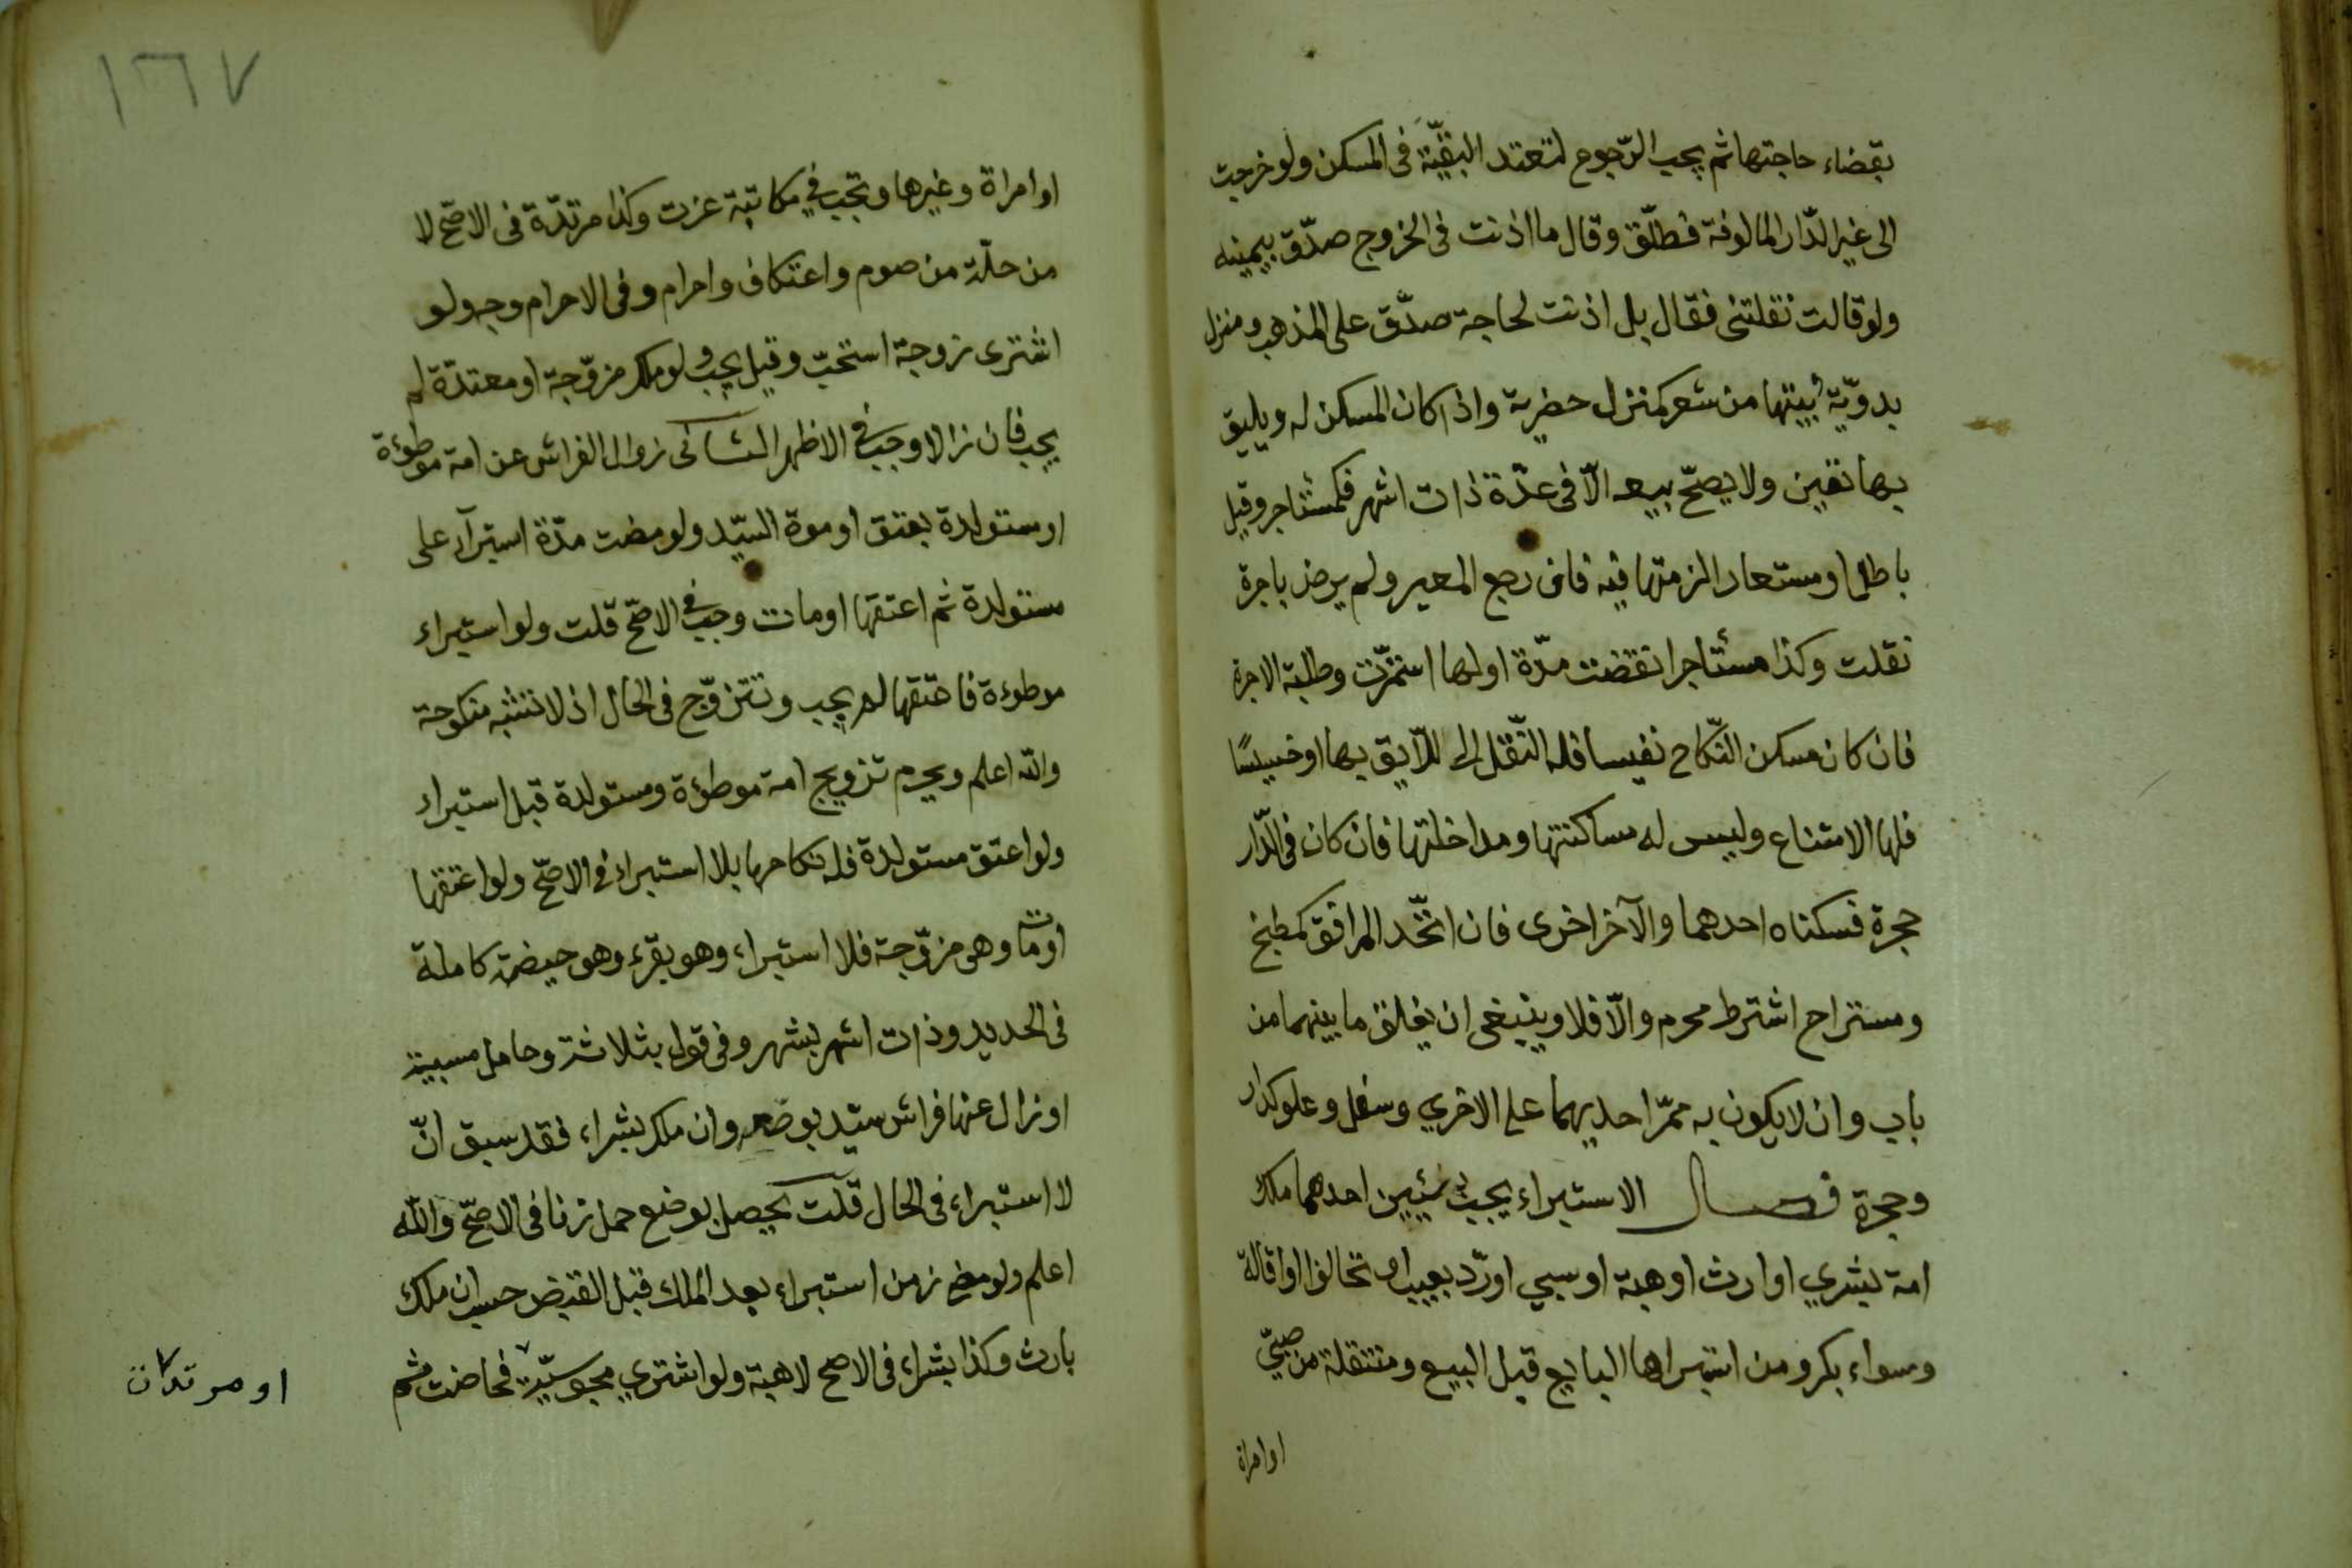 بقضاء حاجتها ثم يجب الرّجوع لتعتد البقيّة فى المسكن ولو خرجت
الى غير الدّار المالوفة فطلّق وقال ما اذنت فى الخروج صدّق بيمينه
ولو قالت نقلتنى فقال بل اذنت لحاجة صدّق على المذهب ومنزل
بدويّة وبيتها من شعر كمنزل حضرية واذا كان المسكن له ويليق
بها تعين ولا يصحّ بيعه الّا فى عدّة ذات اشهر فكمستاجر وقيل
باطل او مستعار الزمتها فيه فان رجع المعير ولم يرض باجرة
نقلت وكذا مستاجر انقضت مدّة اولها استمرّت وطلبة الاجرة
فان كان مسكن النّكاح نفيسا فله النّقل الى اللّايق بها او خسيسًا
فلها الامتناع وليس له مساكنتها ومداخلتها فان كان فى الدّار
حجرة فسكناه احدهما والآخر اخرى فان اتّحد المرافق كمطبخ
ومستراح اشترط محرم والّا فلا وينبغى ان يغلق ما بينهما من
باب وان لا يكون به ممرّ احديهما على الاخري وسفل وعلو كدار
وحجرة فصـــل الاستبراء يجب بشيئين احدهما ملك
امة بشري او ارث او هبة او سبي او ردّ بعيب او تحالف او اقالة
وسواء بكر ومن استبراها البايع قبل البيع ومنتقلة من صبيّ
اوامراة
١٦٧
او امراة وغيرها وتجب في مكاتبة عزت وكذا مرتدّة فى الاصّح لا
من حلّت من صوم واعتكاف واحرام وفى الاحرام وجه ولو
اشترى زوجتة استحبّ وقيل يجب ولو ملك مزوّجة او معتدّة لم
يجب فان زالا وجب فى الاظهر الثـانى زوال الفراش عن امة موطوءة
او ستولدة بعتق او موة السيّد ولو مضت مدّة استبرآء على
مستولدة ثم اعتقها او مات وجب فى الاصّح قلت ولو استبراء
موطوءة فاعتقها لم يجب وتتزوّج فى الحال اذ لا تشبه منكوحة
والله اعلم ويحرم تزويج امة موطوءة ومستولدة قبل استبراء
ولو اعتق مستولدة فله نكاحها بلا استبراء فى الاصّح ولو اعتقها
او مات وهى مزوّجة فلا استبراء وهو بقرء وهو حيضة كاملة
فى الجديد وذات اشهر بشهر وفى قول بثلاثة وحامل مسبية
او زال عنها فراش سيّد بوضعه وان ملك بشراء فقد سبق انّ
لا استبراء فى الحال قلت يحصل بوضع حمل زنا فى الاصّح والله
اعلم ولو مضي زمن استبراء بعد الملك قبل القبض حسب ان ملك
بارث وكذا بشراء فى الاصح لا هبة ولو اشتري مجوسيّة فحاضت ثم
او مرتدة